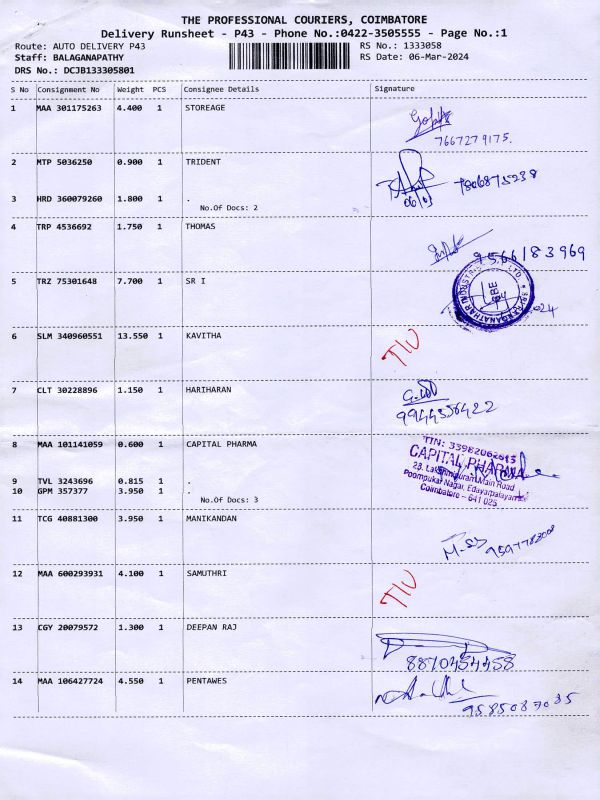 THE PROFESSIONAL COURIERS, COIMBATORE
Delivery Runsheet - P43 - Phone No.:0422-3505555 - Page No.:1
Route: AUTO DELIVERY P43 RS No.: 1333058
Staff: BALAGANAPATHY RS Date: 06-Mar-2024
DRS No.: DCJB133305801
S No Consignment No Weight PCS Consignee Details Signature
1 MAA 301175263 4.400 1 STOREAGE
7667279175.
2 MTP 5036250 0.900 1 TRIDENT
7806875238
06/03
3 HRD 360079260 1.800 1 .
No.Of Docs: 2
4 TRP 4536692 1.750 1 THOMAS
9566183969
5 TRZ 75301648 7.700 1 SR I
6 SLM 340960551 13.550 1 KAVITHA
7 CLT 30228896 1.150 1 HARIHARAN
9944356422
8 MAA 101141059 0.600 1 CAPITAL PHARMA
TIN: 33982062615
CAPITAL PHARMA
Main Road
Poompukar Nagar, Edayarpalayam
Coimbatore - 641 025
9 TVL 3243696 0.815 1 .
10 GPM 357377 3.950 1 .
No.Of Docs: 3
11 TCG 40881300 3.950 1 MANIKANDAN
12 MAA 600293931 4.100 1 SAMUTHRI
13 CGY 20079572 1.300 1 DEEPAN RAJ
8870454458
14 MAA 106427724 4.550 1 PENTAWES